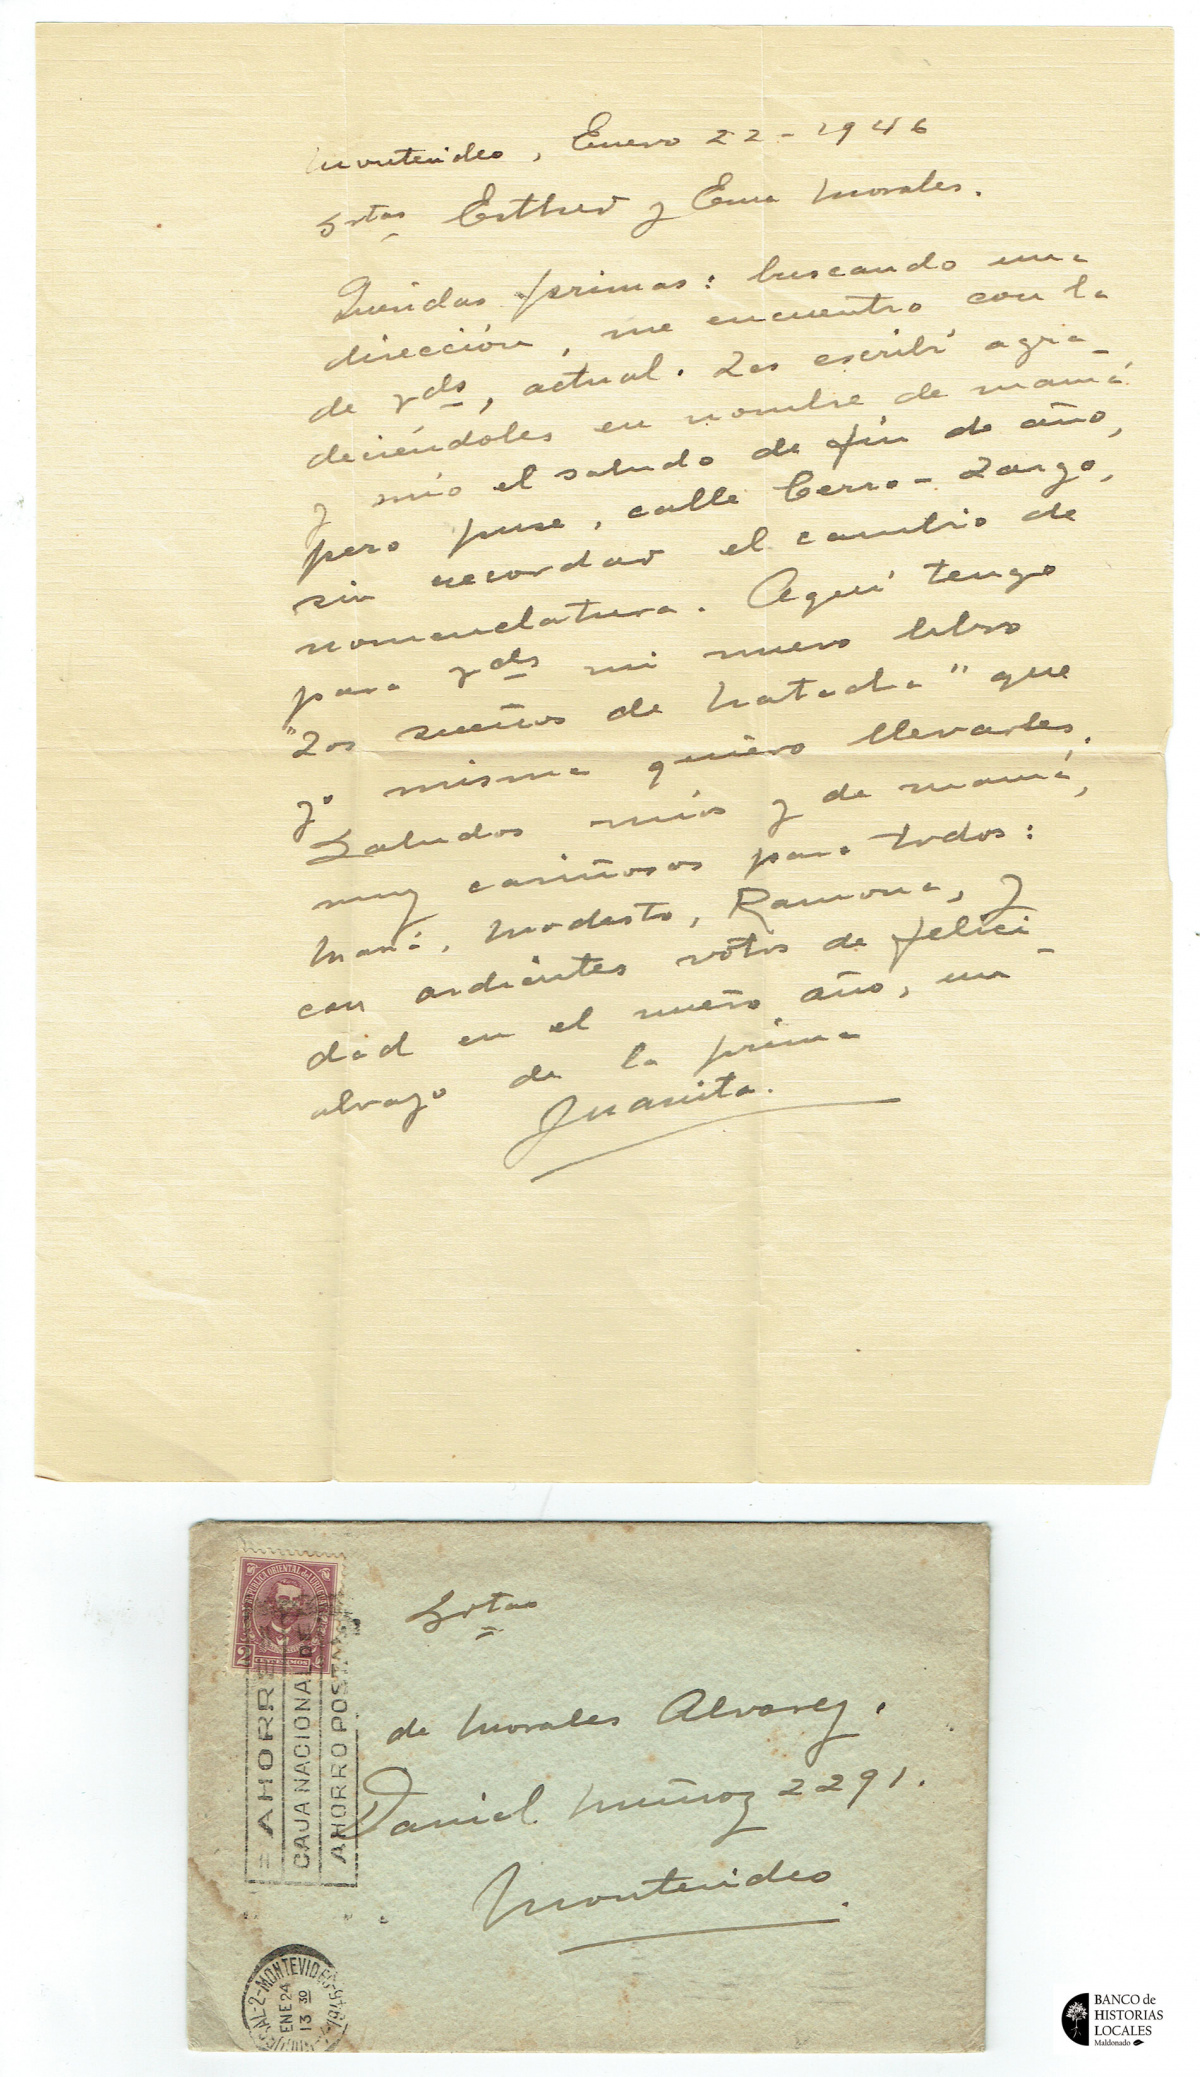 Montevideo, Enero 22 - 1946
Srtas Esther y Ema Morales.
Queridas primas: buscando una
dirección, me encuentro con la
de Vds, actual. Les escribí agra-
deciéndoles en nombre de mamá
y mío el saludo de fin de año,
pero puse, calle Cerro-Largo,
sin recordar el cambio de
nomenclatura. Aquí tengo
para Vds mi nuevo libro
"Los sueños de Natacha" que
yo misma quiero llevarles.
Saludos míos y de mamá,
muy cariñosos para todos:
Modesto, Ramona, y
con ardientes votos de felici-
dad en el nuevo año, un
abrazo de la prima
Juanita.
REPUBLICA ORIENTAL del URUGUAY
2 CENTESIMOS
AHORRE
CAJA NACIONAL DE
AHORRO POSTAL
Srtas
de Morales Alvarez.
Daniel Muñoz 2291.
Montevideo
SUCURSAL-2-MONTEVIDEO
ENE 24
13 30
1946
BANCO de
HISTORIAS
LOCALES
Maldonado